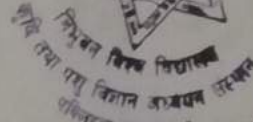 त्रिभुवन विश्व विद्यालय
कृषि तथा पशु विज्ञान अध्ययन संस्थान